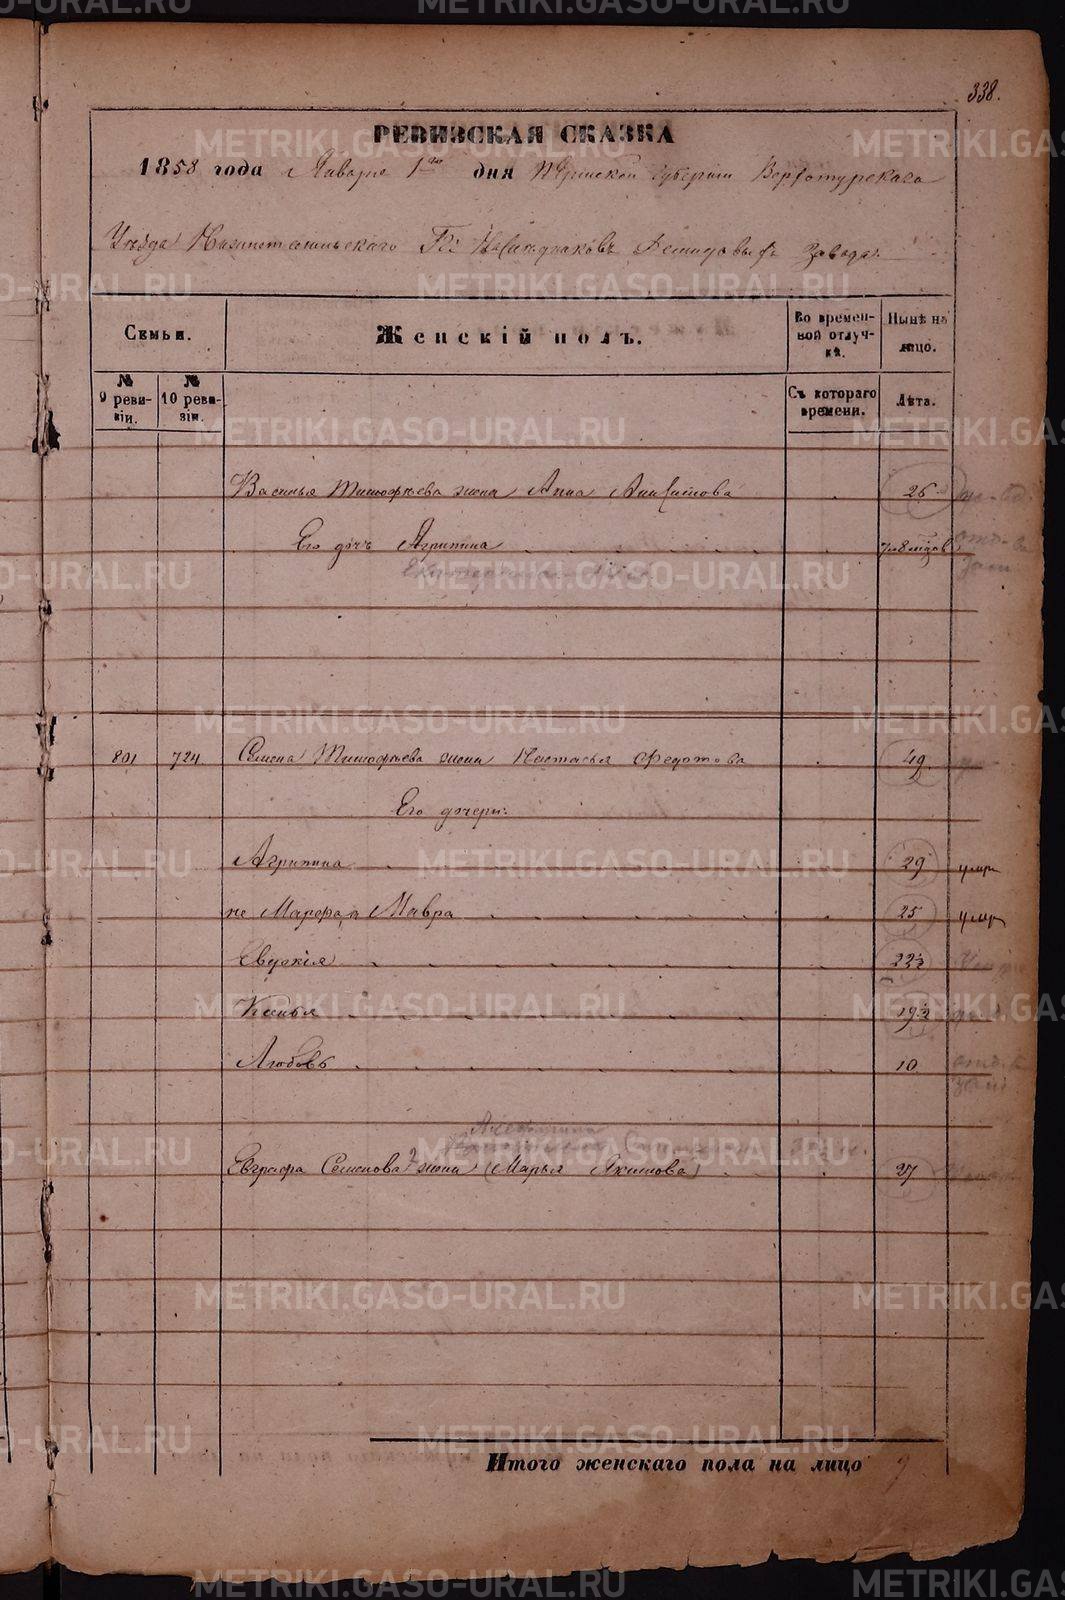 338.
РЕВИЗСКАЯ СКАЗКА
1858 года Января 1го дня Пермской Губернии Верхотурскаго
Уѣзда Нижнетагильскаго Гг: Наслѣдниковъ Демидовыхъ Завода.
Семьи.
Женскій полъ.
Во временной отлучкѣ.
Нынѣ на лицо.
№ 9 ревизіи.
№ 10 ревизіи.
Съ котораго времени.
Лѣта.
Василья Тимофѣева жена Анна 26
Его дочь Агрипина
801 724 Семена Тимофѣева жена Настасья Федотова 49
Его дочери:
Агрипина 29 умр
не Марфа, а Мавра 25 умр
Евдокія 22½
Ксенья 19½
Любовь 10
Евграфа Семенова 2 жена (Марья Якимова) 27
Итого женскаго пола на лицо 9
METRIKI.GASO-URAL.RU